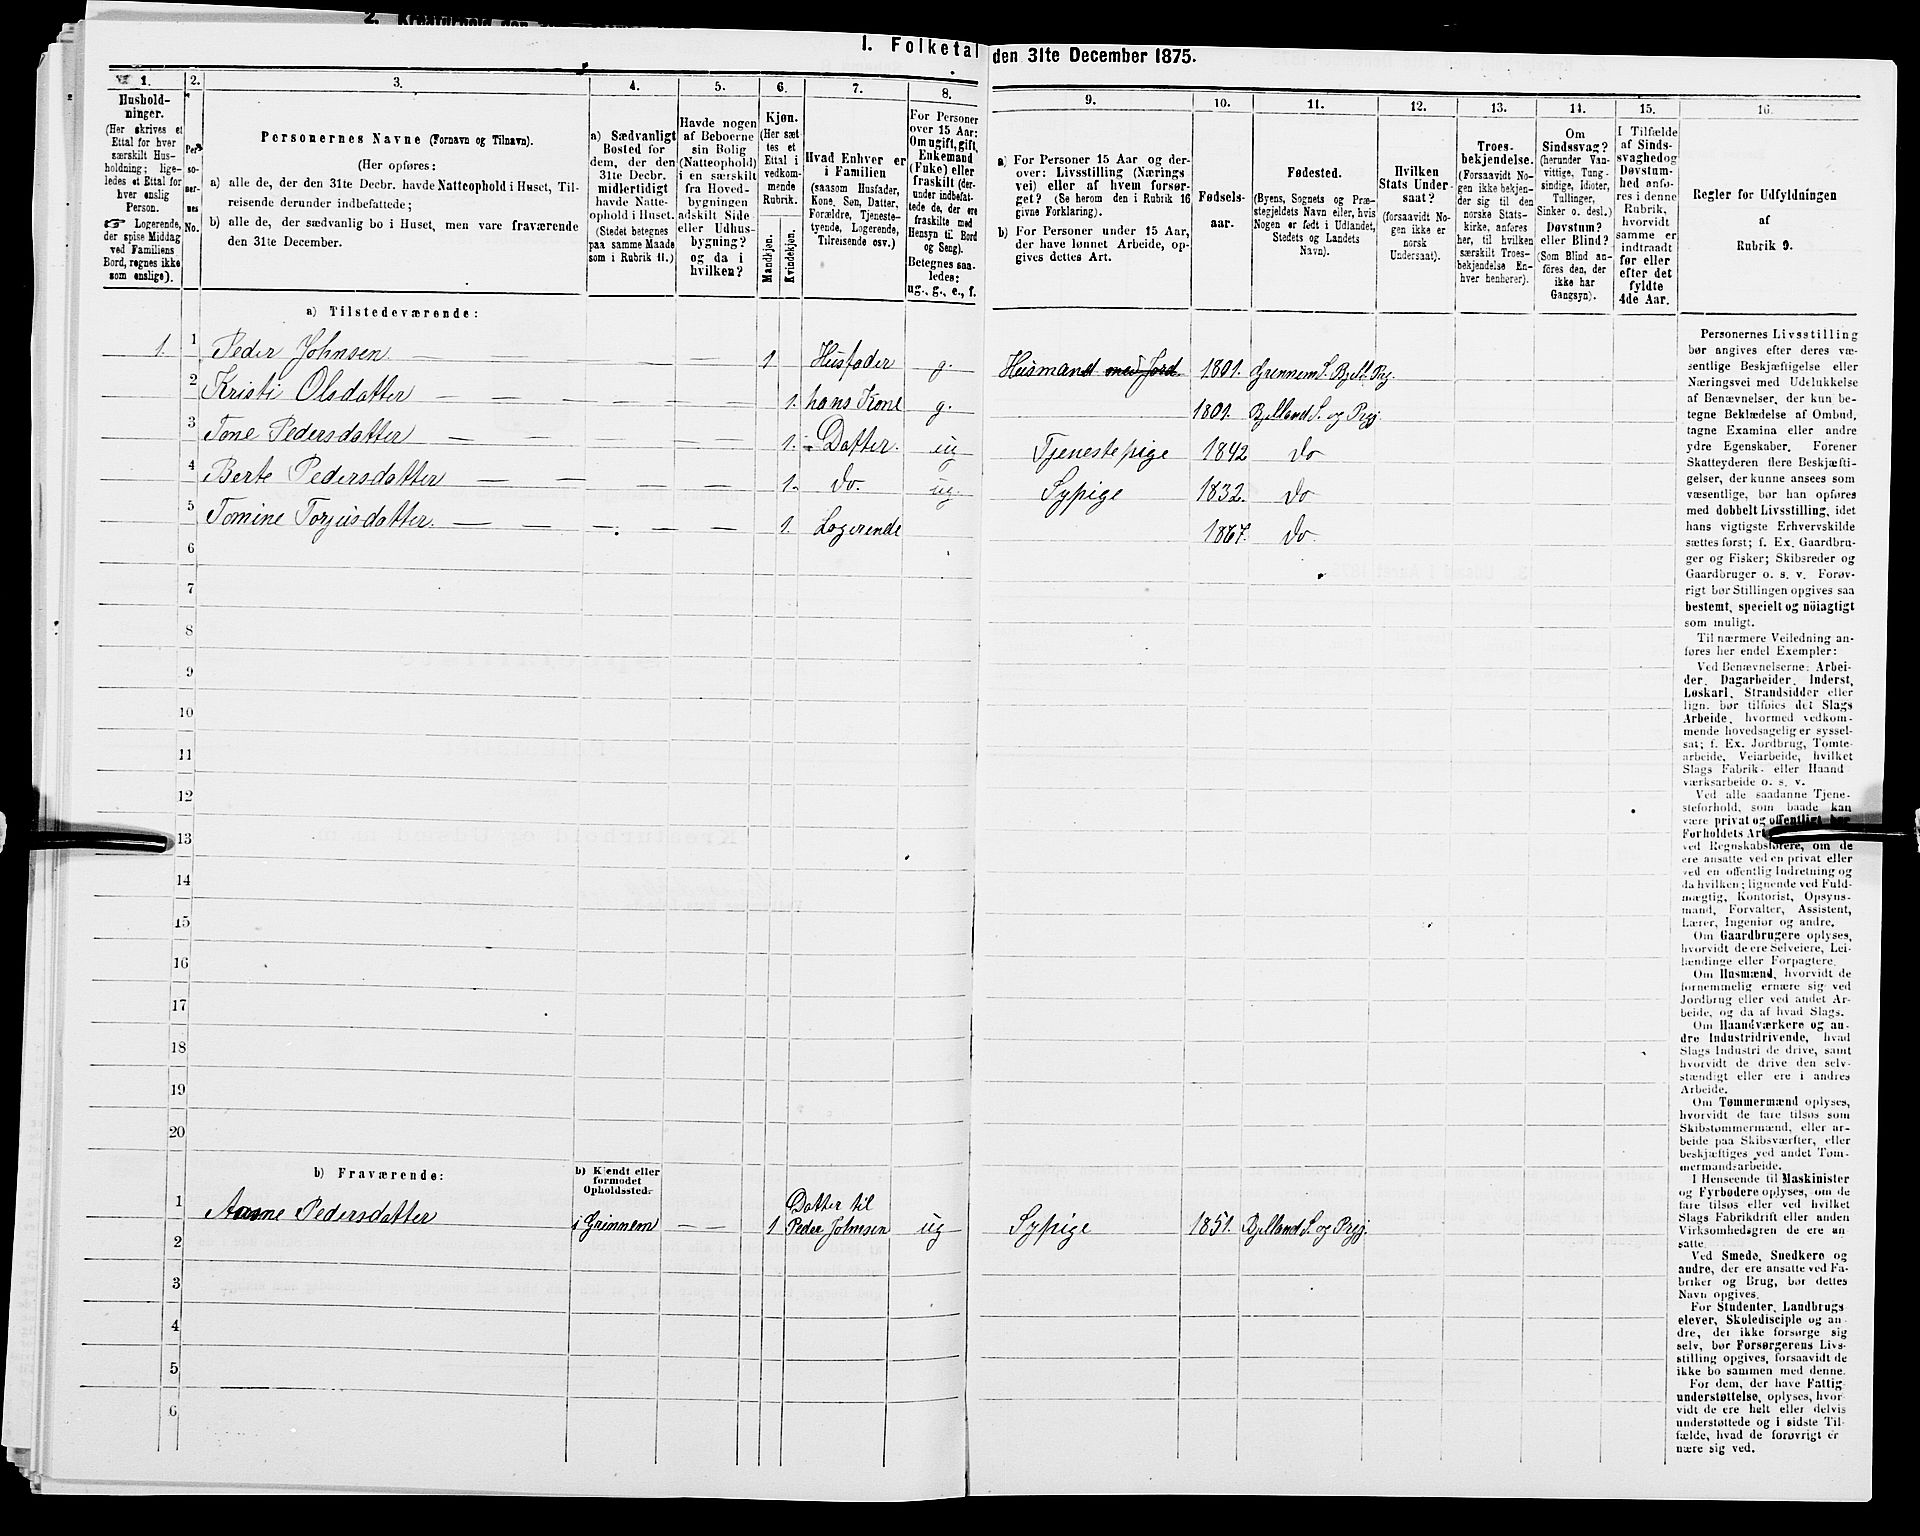 I. Folketal den 31te December 1875.
1. 2. 3. 4. 5. 6. 7. 8. 9. 10. 11. 12. 13. 14. 15. 16.
Hushold-
ninger.
(Her skrives et
Ettal for hver
særskilt Hus-
holdning; lige-
ledes et Ettal for
hver enslig
Person.
☞ Logerende,
der spise Middag
ved Familiens
Bord, regnes ikke
som enslige).
Per-
so-
ner-
nes
No.
Personernes Navne (Fornavn og Tilnavn).
(Her opføres:
a) alle de, der den 31te Decbr. havde Natteophold i Huset, Til-
reisende derunder indbefattede;
b) alle de, der sædvanlig bo i Huset, men vare fraværende
den 31te December.
a) Sædvanligt
Bosted for
dem, der den
31te Decbr.
midlertidigt
havde Natte-
ophold i Huset.
(Stedet betegnes
paa samme Maade
som i Rubrik 11.)
Havde nogen
af Beboerne
sin Bolig
(Natteophold)
i en særskilt
fra Hoved-
bygningen
adskilt Side-
eller Udhus-
bygning?
og da i
hvilken?
Kjøn.
(Her sæt
tes et
Ettal i
vedkom-
mende
Rubrik.
Mandkjøn.
Kvindekjøn.
Hvad Enhver er
i Familien
(saasom Husfader,
Kone, Søn, Datter,
Forældre, Tjeneste-
tyende, Logerende,
Tilreisende osv.)
For Personer
over 15 Aar:
Om ugift, gift,
Enkemand
(Fuke) eller
fraskilt (der-
under indbefat-
tede de, der ere
fraskilte med
Hensyn til Bord
og Seng).
Betegnes saa-
ledes:
ug., g., e., f.
a) For Personer 15 Aar og der-
over: Livsstilling (Nærings
vei) eller af hvem forsør-
get? (Se herom den i Rubrik 16
givne Forklaring).
b) For Personer under 15 Aar,
der have lønnet Arbeide, op-
gives dettes Art.
Fødsels-
aar.
Fødested.
(Byens, Sognets og Præ-
stegjeldets Navn eller, hvis
Nogen er født i Udlandet,
Stedets og Landets
Navn).
Hvilken
Stats Under-
saat?
(forsaavidt No-
gen ikke er
norsk
Undersaat).
Troes-
bekjendelse.
(Forsaavidt No-
gen ikke bekjen-
der sig til den
norske Stats-
kirke, anføres
her, til hvilken
særskilt Troes-
bekjendelse En-
hver henhører).
Om
Sindssvag?
(herunder Van-
vittige, Tung-
sindige, Idioter,
Tullinger,
Sinker o. desl.)
Døvstum?
eller Blind?
(Som Blind an-
føres den, der
ikke har
Gangsyn).
I Tilfælde
af Sinds-
svaghedog
Døvstum-
hed anfø-
res i denne
Rubrik,
hvorvidt
samme er
indtraadt
før eller
efter det
fyldte
4de Aar.
Regler for Udfyldningen
af
Rubrik 9.
a) Tilstedeværende:
1. 1 Peder Johnsen — — — — 1 Husfader g. Husmand med Jord. 1801. Grennem S. Bjell. Prg
2 Kristi Olsdatter — — — — 1. hans Kone g. 1801. Bjelland S. og Prgj.
3 Tone Pedersdatter — — — — 1. Datter. ug Tjenestepige 1842 do
4 Berte Pedersdatter — — — — 1. do. ug. Sypige 1832. do
5 Tomine Torjusdatter. — — — — 1. Logerende 1867. do
6
7
8
9
10
11
12
13
14
15
16
17
18
19
20
b) Fraværende:
b) Kjendt eller
formodet
Opholdssted.
1 Aasne Pedersdatter i Grinnem — — 1 Datter til
Peder Johnsen ug Sypige 1851. Bjelland S. og Prgj.
2
3
4
5
6
Personernes Livsstilling
bør angives efter deres væ-
sentlige Beskjæftigelse eller
Næringsvei med Udelukkelse
af Benævnelser, der kun be-
tegne Beklædelse af Ombud,
tagne Examina eller andre
ydre Egenskaber. Forener
Skatteyderen flere Beskjæfti-
gelser, der kunne ansees som
væsentlige, bør han opføres
med dobbelt Livsstilling, idet
hans vigtigste Erhvervskilde
sættes først; f. Ex. Gaardbru-
ger og Fisker; Skibsreder og
Gaardbruger o. s. v. Forøv-
rigt bør Stillingen opgives saa
bestemt, specielt og nöiagtigt
som muligt.
Til nærmere Veiledning an-
føres her endel Exempler:
Ved Benævnelserne: Arbei-
der, Dagarbeider, Inderst,
Løskarl, Strandsidder eller
lign. bør tilføies det Slags
Arbeide, hvormed vedkom-
mende hovedsagelig er syssel-
sat; f. Ex. Jordbrug, Tomte-
arbeide, Veiarbeide, hvilket
Slags Fabrik- eller Haand
værksarbeide o. s. v.
Ved alle saadanne Tjene-
steforhold, som baade kan
være privat og offentligt, bør
Forholdets Art
ved Regnskabsførere, om de
ere ansatte ved en privat eller
ved en offentlig Indretning og
da hvilken; lignende ved Fuld-
mægtig, Kontorist, Opsyns-
mand, Forvalter, Assistent,
Lærer, Ingeniør og andre.
Om Gaardbrugere oplyses,
hvorvidt de ere Selveiere, Lei-
lændinge eller Forpagtere.
Om Husmænd, hvorvidt de
fornemmelig ernære sig ved
Jordbrug eller ved andet Ar-
beide, og da af hvad Slags.
Om Haandværkere og an-
dre Industridrivende, hvad
Slags Industri de drive, samt
hvorvidt de drive den selv-
stændigt eller ere i andres
Arbeide.
Om Tømmermænd oplyses,
hvorvidt de fare tilsøs som
Skibstømmermænd, eller ar-
beide paa Skibsværfter, eller
beskjæftiges ved andet Tøm-
mermandsarbeide.
I Henseende til Maskinister
og Fyrbødere oplyses, om de
fare tilsøs eller ved hvilket
Slags Fabrikdrift eller anden
Virksomhedsgren de ere an-
satte.
Ved Smede, Snedkere og
andre, der ere ansatte ved Fa-
briker og Brug, bør dettes
Navn opgives.
For Studenter, Landbrugs
elever, Skoledisciple og an
dre, der ikke forsørge sig
selv, bør Forsørgerens Livs-
stilling opgives, forsaavidt de
ikke bo sammen med denne.
For dem, der have Fattig
understøttelse, oplyses, hvor-
vidt de ere helt eller delvis
understøttede og i sidste Til-
fælde, hvad de forøvrigt er
nære sig ved.